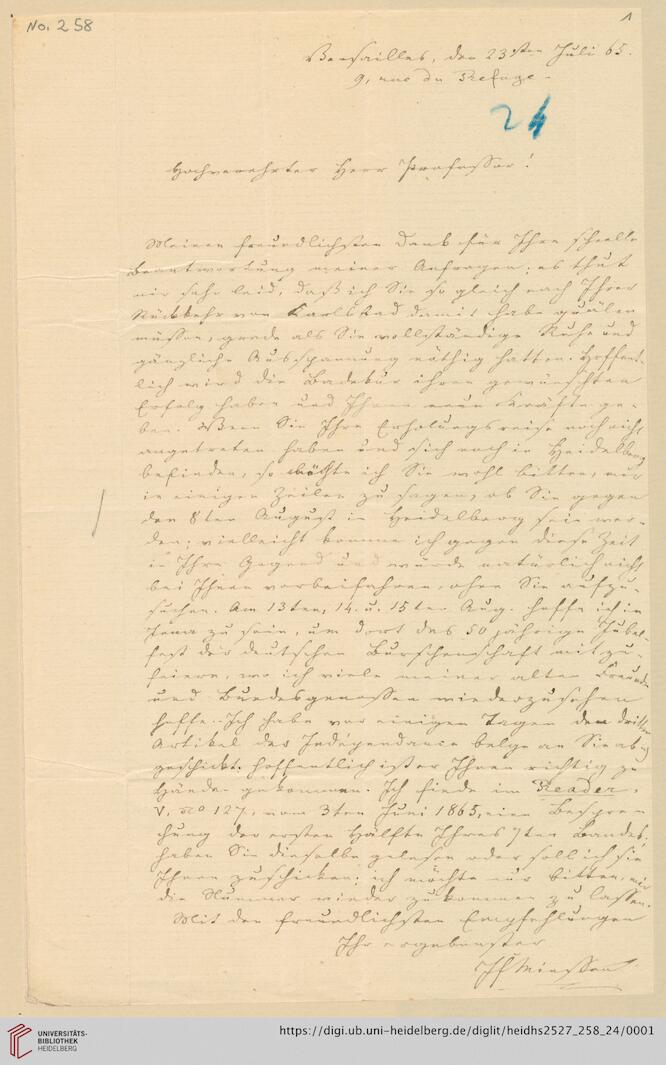 No. 258
1
Versailles, den 23sten Juli 65.
9, rue du Refuge.
24
Hochverehrter Herr Professor!
Meinen freundlichsten Dank für Ihre schnelle
Beantwortung meiner Anfragen; es thut
mir sehr leid, daß ich Sie so gleich nach Ihrer
Rückkehr von Karlsbad damit habe quälen
müssen, grade als Sie vollständige Ruhe und
gänzliche Ausspannung nöthig hatten. Hoffent-
lich wird die Badekur ihren gewünschten
Erfolg haben und Ihnen neue Kräfte ge-
ben. Wenn Sie Ihre Erholungsreise noch nicht
angetreten haben und sich noch in Heidelberg
befinden, so möchte ich Sie wohl bitten, mir
in einigen Zeilen zu sagen, ob Sie gegen
den 8ten August in Heidelberg sein wer-
den; vielleicht komme ich gegen diese Zeit
in Ihre Gegend und würde natürlich nicht
bei Ihnen vorbeifahren, ohne Sie aufzu-
suchen. Am 13ten, 14. u. 15ten Aug. hoffe ich in
Jena zu sein, um dort das 50 jährige Jubel-
fest der deutschen Burschenschaft mitzu-
feiern, wo ich viele meiner alten Freunde
und Bundesgenossen wiederzusehen
hoffe. Ich habe vor einigen Tagen den dritten
Artikel der Indépendance belge an Sie ab-
geschickt. Hoffentlich ist er Ihnen richtig zu
Händen gekommen. Ich finde im Reader,
V, no 127, vom 3ten Juni 1865, eine Bespre-
chung der ersten Hälfte Ihres 7ten Bandes;
haben Sie dieselbe gelesen oder soll ich sie
Ihnen zuschicken; ich möchte nur bitten, mir
die Nummer wieder zukommen zu lassen.
Mit den freundlichsten Empfehlungen
Ihr ergebenster
JfMinssen
UNIVERSITÄTS-
BIBLIOTHEK
HEIDELBERG
https://digi.ub.uni-heidelberg.de/diglit/heidhs2527_258_24/0001